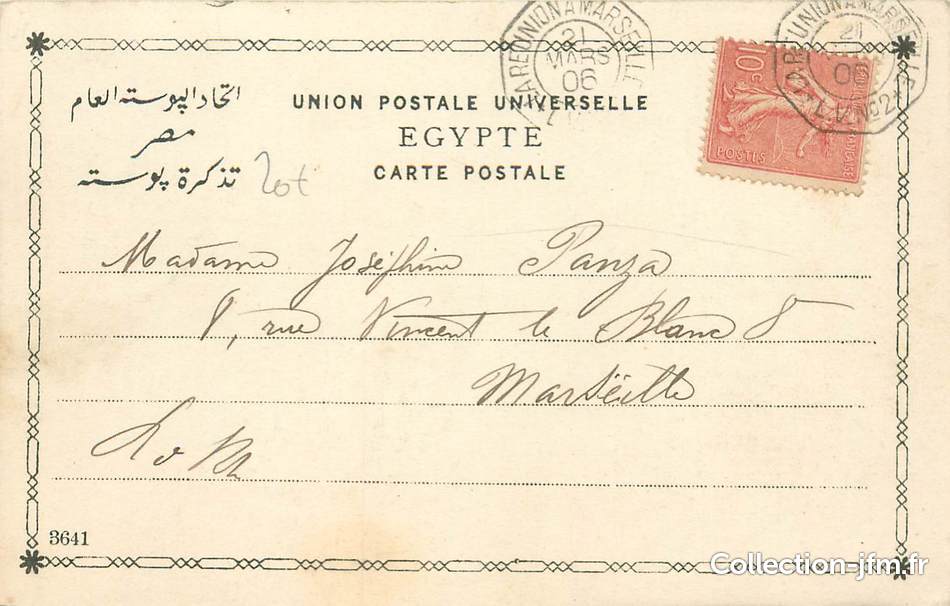 LA REUNION A MARSEILLE
21
MARS
06
L.V. No 2
LA REUNION A MARSEILLE
21
06
L.V. No 2
10c
POSTES
FRANÇAISE
اتحاد البوستة العام
UNION POSTALE UNIVERSELLE
مصر
EGYPTE
تذكرة بوستة
CARTE POSTALE
Madame Joséphine Panza
8, rue Vincent le Blanc 8
Marseille
3641
Collection-jfm.fr